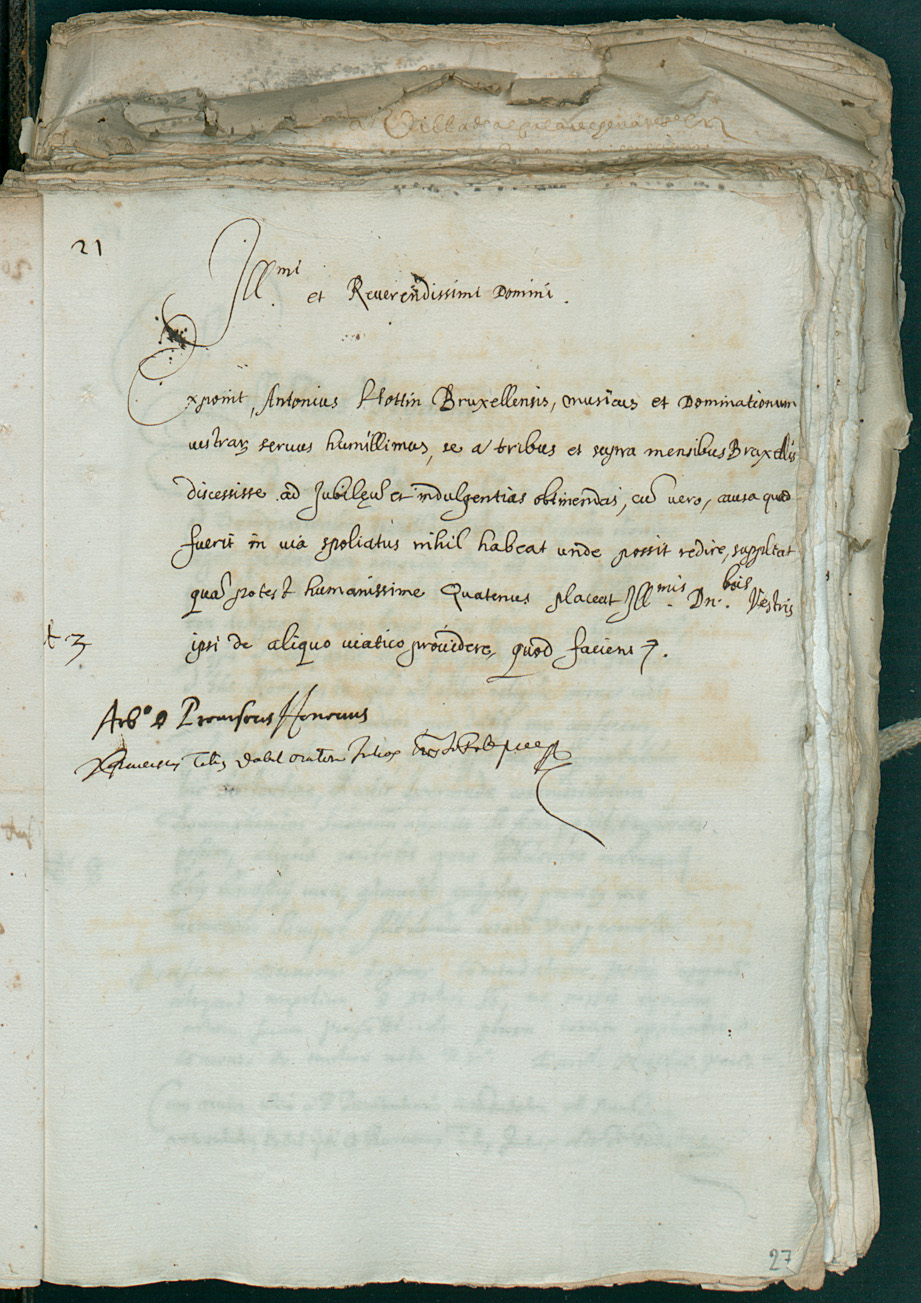 21
Ill.mi et Reverendissimi Domini.
Exponit, Antonius Hottin Bruxellensis, musicus et Dominationum
vestrar. servus humillimus, se a tribus et supra mensibus Bruxellis
discessisse ad Jubileū et indulgentias obtinendas, cū vero, causa quod
fuerit in via spoliatus nihil habeat unde possit redire, supplicat
quā potest humanissime Quatenus placeat Ill.mis Dn.bus Vestris
ipsi de aliquo viatico providere, quod faciens
t 3
Arb.o D Provisoris
dabit oratori Julios
27